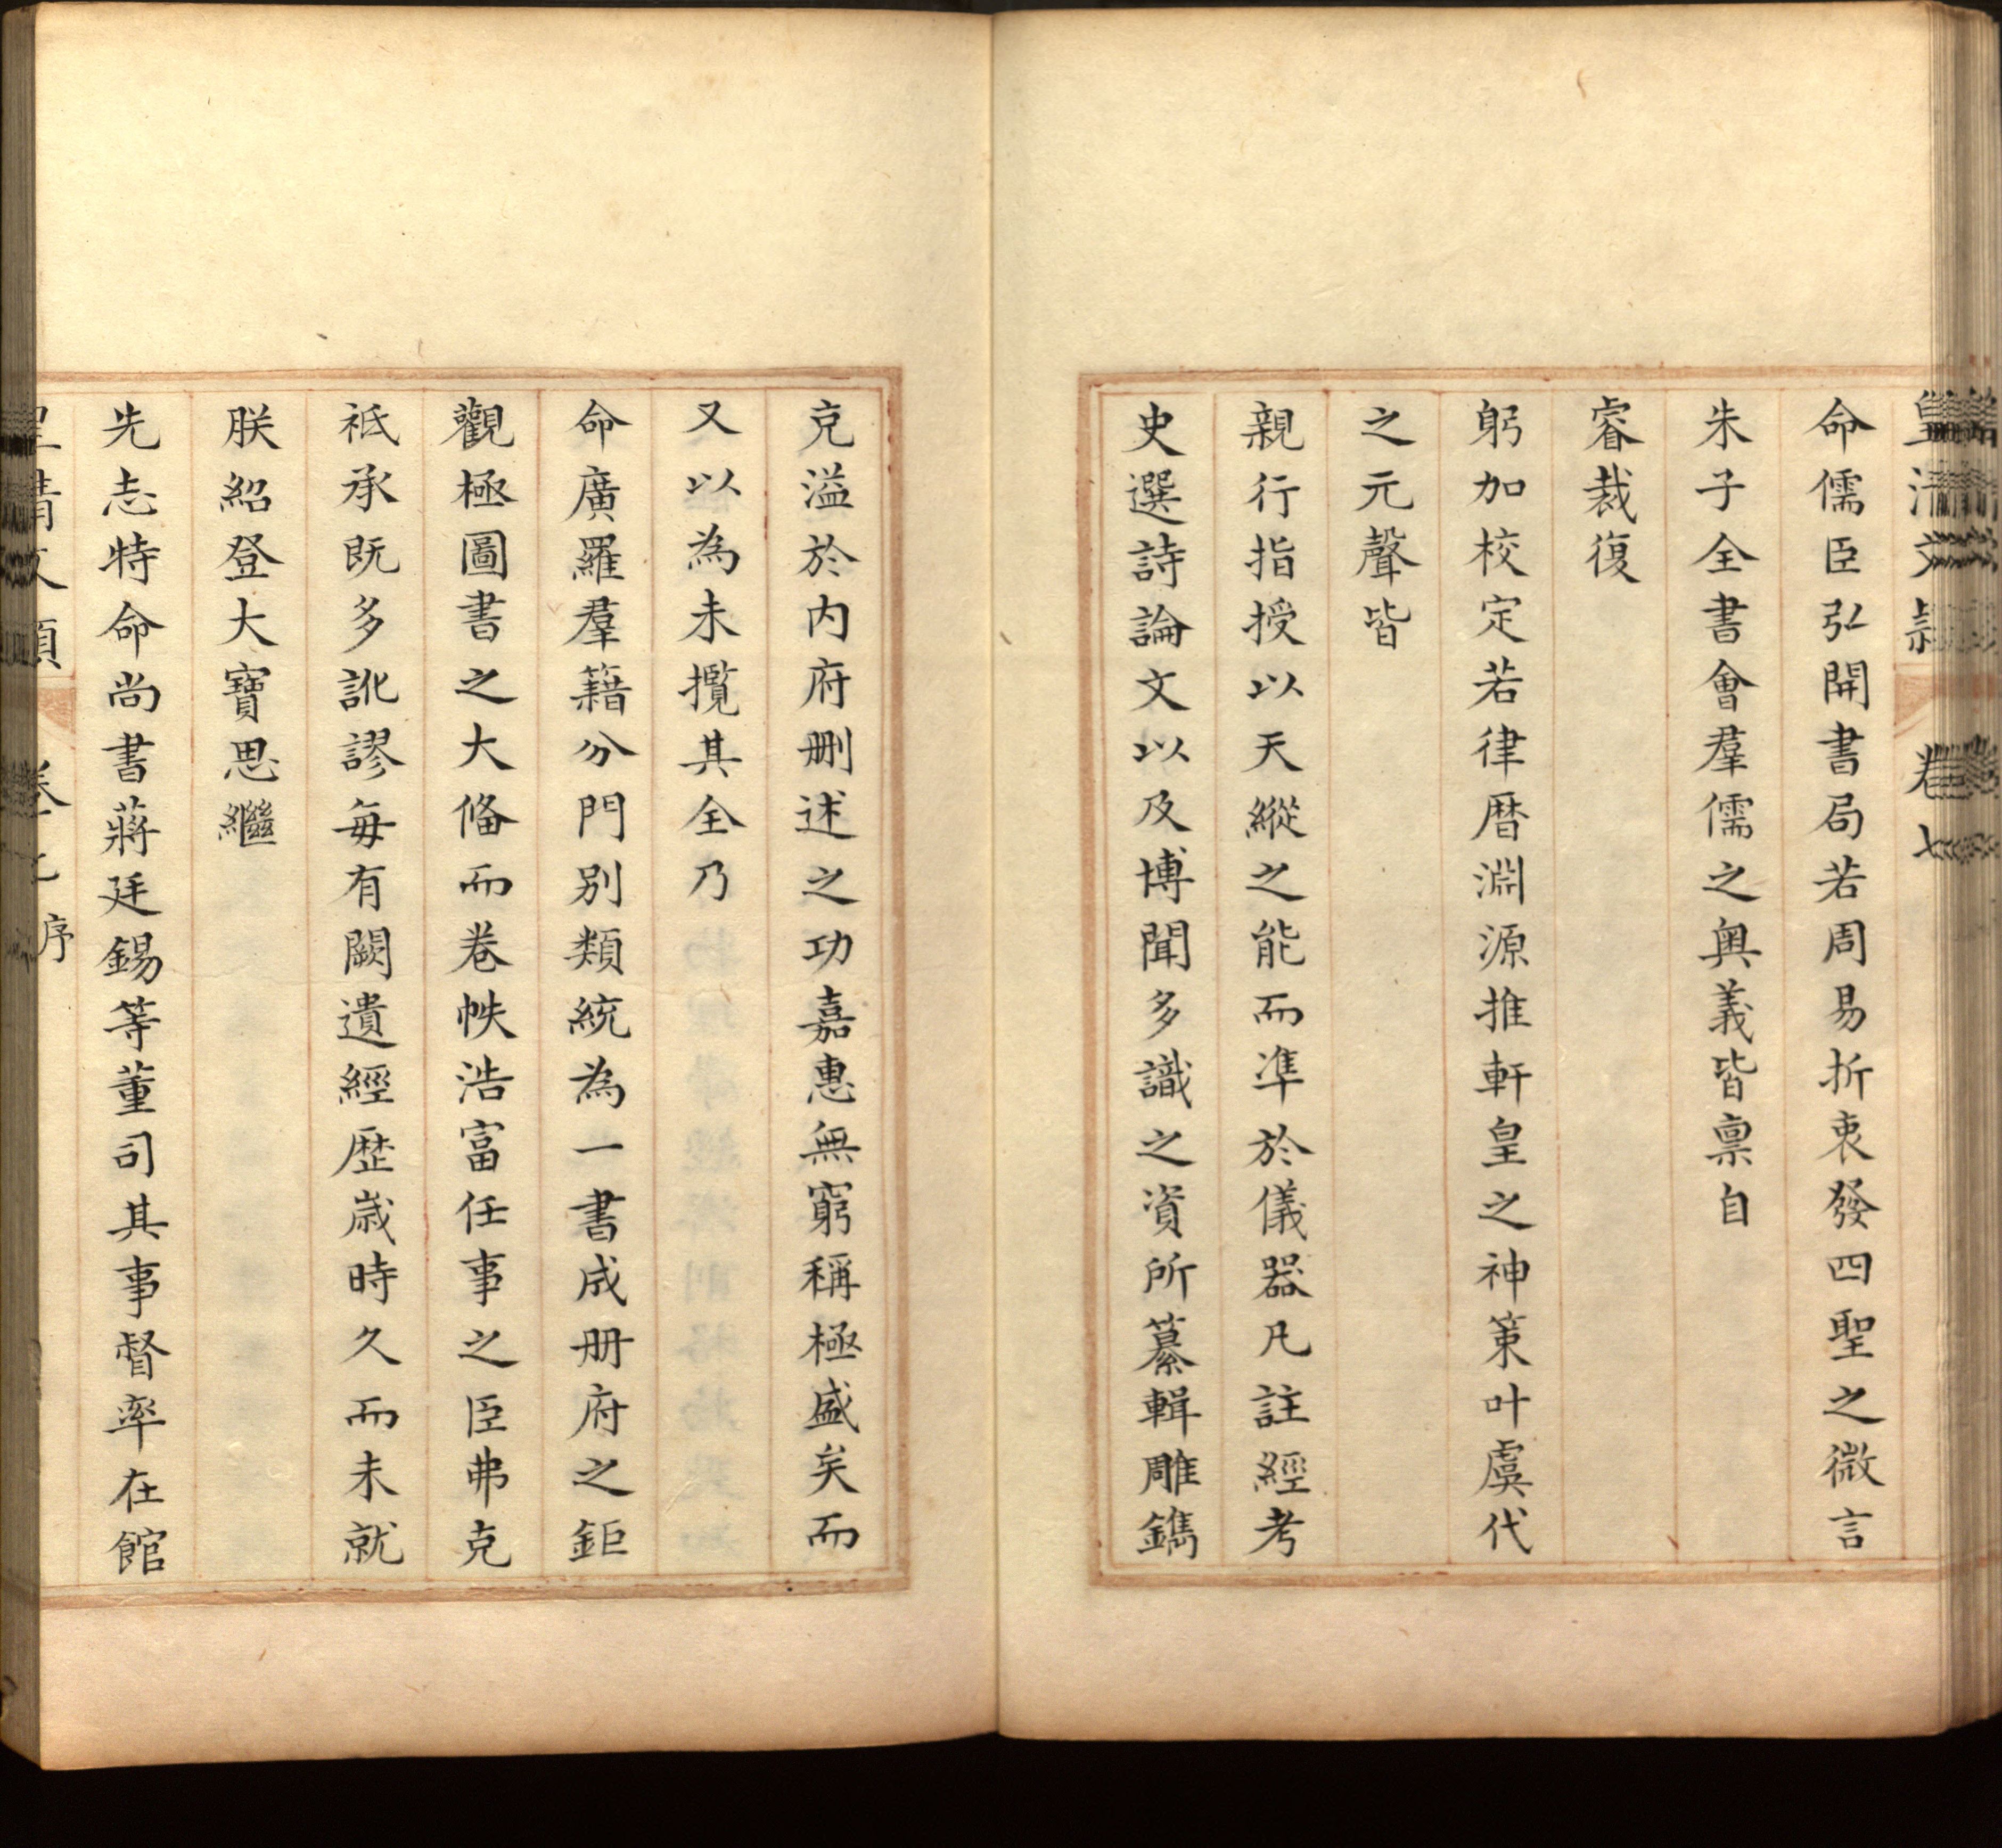 皇清文穎 卷七
命儒臣弘開書局若周易折衷發四聖之微言
朱子全書會羣儒之奧義皆禀自
睿裁復
躬加校定若律暦淵源推軒皇之神策叶虞代
之元聲皆
親行指授以天縱之能而凖於儀器凡註經考
史選詩論文以及博聞多識之資所纂輯雕鐫
克溢於内府刪述之功嘉惠無窮稱極盛矣而
又以為未攬其全乃
命廣羅羣籍分門别類統為一書成册府之鉅
觀極圖書之大俻而卷帙浩富任事之臣弗克
祇承既多訛謬每有闕遺經歴嵗時久而未就
朕紹登大寶思繼
先志特命尚書蔣廷錫等董司其事督率在館
皇清文穎 卷七 序